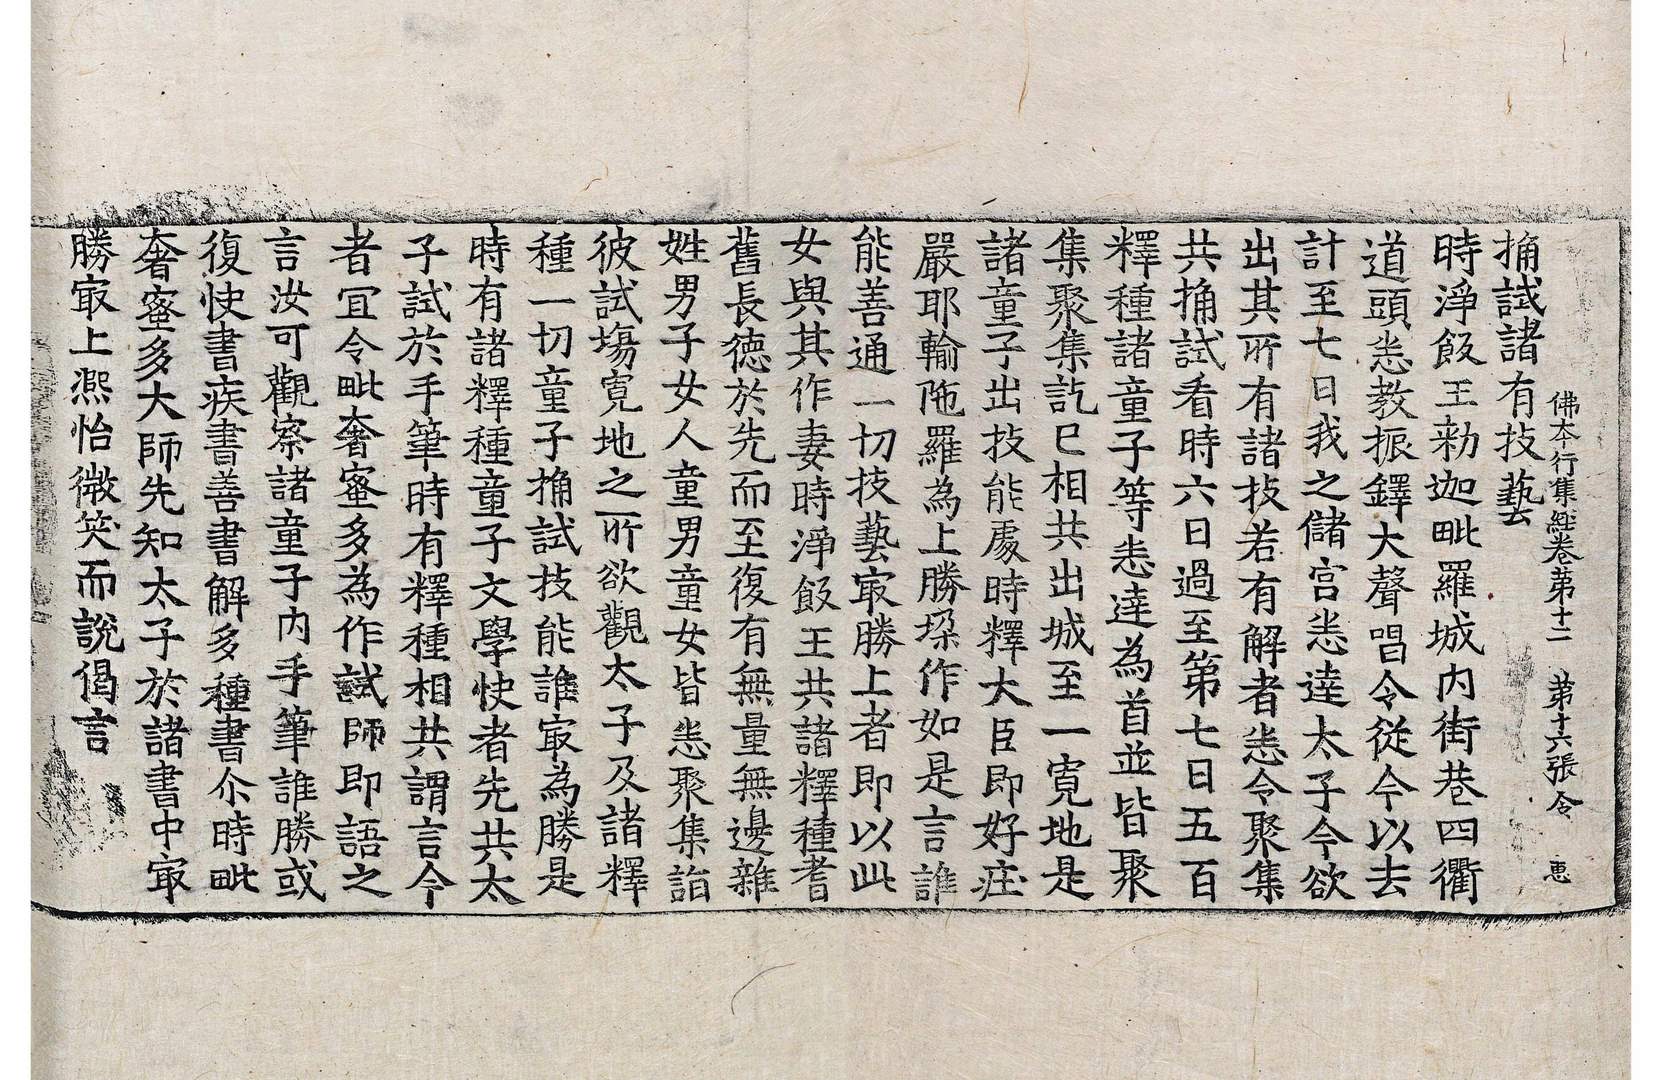 佛本行集經卷第十二　第十六張　令　恵
捔試諸有技藝
時淨飯王勑迦毗羅城内街巷四衢
道頭悉教振鐸大聲唱令從今以去
計至七日我之儲宫悉達太子今欲
出其所有諸技若有解者悉令聚集
共捔試看時六日過至第七日五百
釋種諸童子等悉達為首並皆聚
集聚集訖已相共出城至一寛地是
諸童子出技能處時釋大臣即好莊
嚴耶輸陁羅為上勝垜作如是言誰
能善通一切技藝冣勝上者即以此
女與其作妻時淨飯王共諸釋種耆
舊長德於先而至復有無量無邊雜
姓男子女人童男童女皆悉聚集詣
彼試塲寛地之所欲觀太子及諸釋
種一切童子捔試技能誰冣為勝是
時有諸釋種童子文學快者先共太
子試於手筆時有釋種相共謂言今
者冝令毗奢蜜多為作試師即語之
言汝可觀察諸童子内手筆誰勝或
復快書疾書善書解多種書尒時毗
奢蜜多大師先知太子於諸書中冣
勝冣上熈怡微笑而說偈言